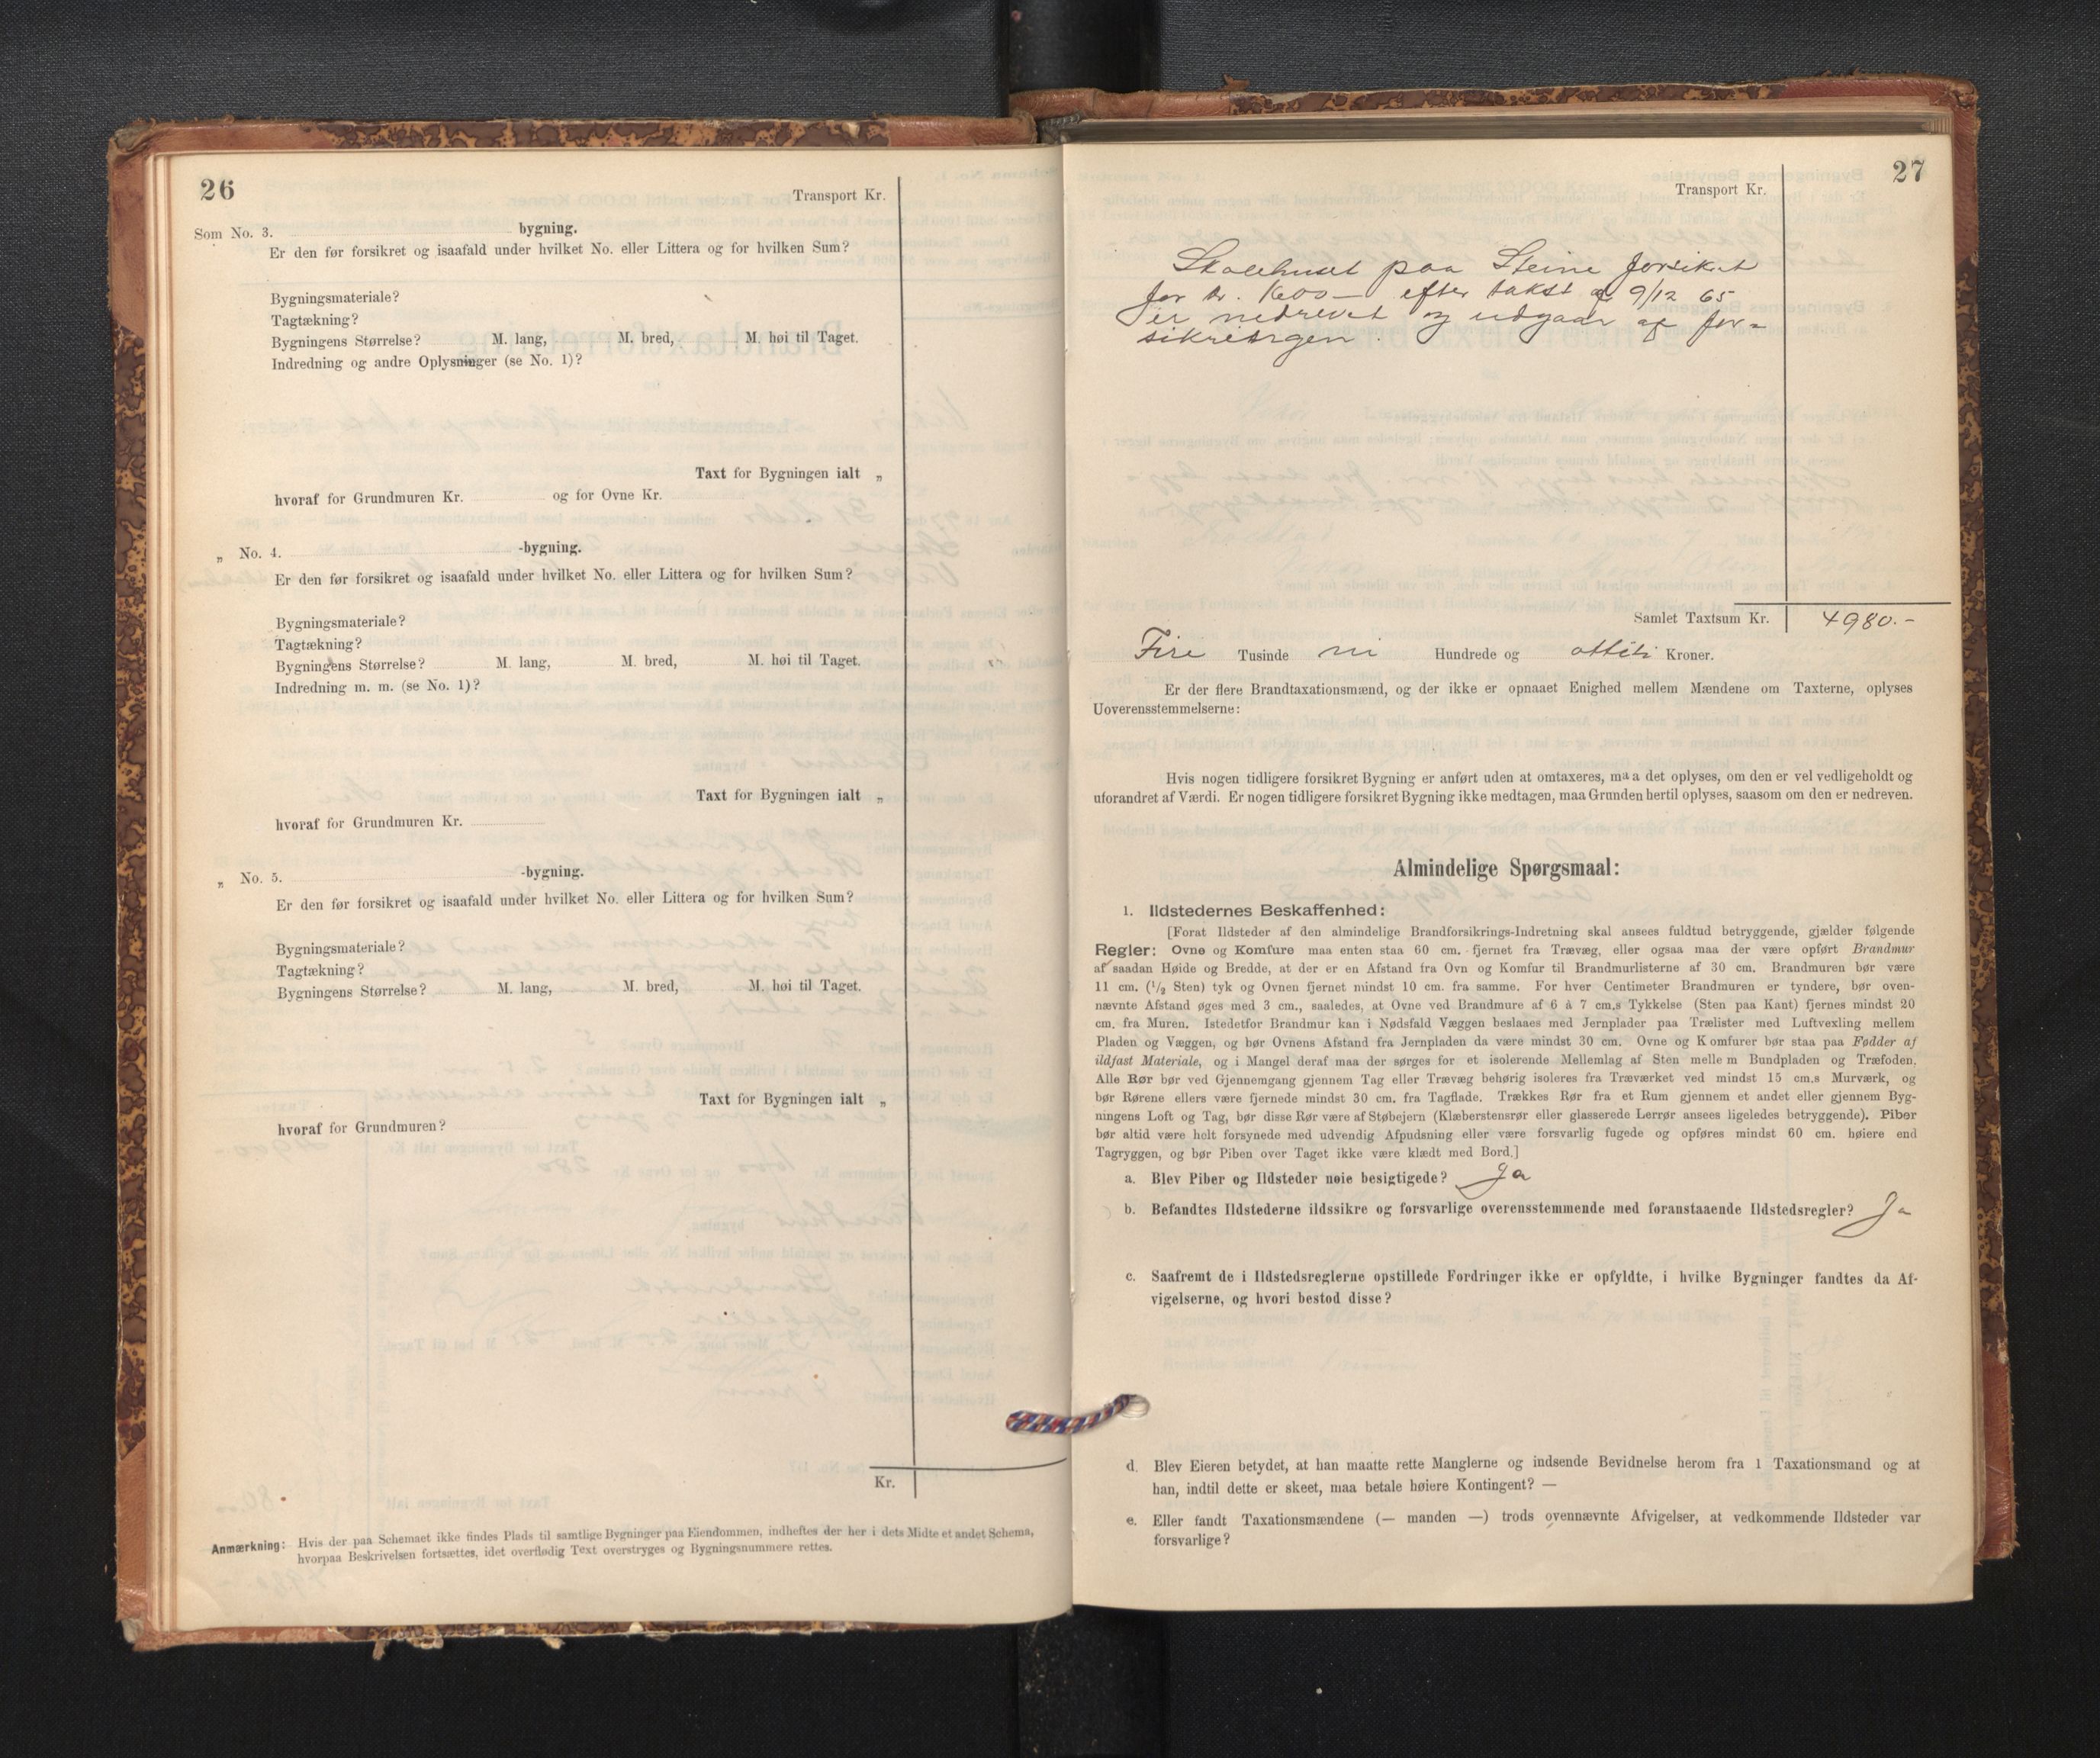 26
Transport Kr.
Som No. 3. bygning.
Er den før forsikret og isaafald under hvilket No. eller Littera og for hvilken Sum?
Bygningsmateriale?
Tagtækning?
Bygningens Størrelse? M. lang, M. bred, M. høi til Taget.
Indredning og andre Oplysninger (se No. 1)?
Taxt for Bygningen ialt „
hvoraf for Grundmuren Kr. og for Ovne Kr.
„ No. 4. -bygning.
Er den før forsikret og isaafald under hvilket No. eller Littera og for hvilken Sum?
Bygningsmateriale?
Tagtækning?
Bygningens Størrelse? M. lang, M. bred, M. høi til Taget.
Indredning m. m. (se No. 1)?
Taxt for Bygningen ialt „
hvoraf for Grundmuren Kr.
„ No. 5. -bygning.
Er den før forsikret og isaafald under hvilket No. eller Littera og for hvilken Sum?
Bygningsmateriale?
Tagtækning?
Bygningens Størrelse? M. lang, M. bred, M. høi til Taget.
Taxt for Bygningen ialt „
hvoraf for Grundmuren?
Kr.
Anmærkning: Hvis der paa Schemaet ikke findes Plads til samtlige Bygninger paa Eiendommen, indheftes der her i dets Midte et andet Schema,
hvorpaa Beskrivelsen fortsættes, idet overflødig Text overstryges og Bygningsnummere rettes.
27
Transport Kr.
Skolehuset paa Steine forsikret
for kr. 1600 — efter takst af 9/12 65
er nedrevet og udgaar af for=
sikringen.
Samlet Taxtsum Kr. 4980.-
Fire Tusinde ni Hundrede og otteti Kroner.
Er der flere Brandtaxationsmænd, og der ikke er opnaaet Enighed mellem Mændene om Taxterne, oplyses
Uoverensstemmelserne:
Hvis nogen tidligere forsikret Bygning er anført uden at omtaxeres, maa det oplyses, om den er vel vedligeholdt og
uforandret af Værdi. Er nogen tidligere forsikret Bygning ikke medtagen, maa Grunden hertil oplyses, saasom om den er nedreven.
Almindelige Spørgsmaal:
1. Ildstedernes Beskaffenhed:
[Forat Ildsteder af den almindelige Brandforsikrings-Indretning skal ansees fuldtud betryggende, gjælder følgende
Regler: Ovne og Komfure maa enten staa 60 cm. fjernet fra Trævæg, eller ogsaa maa der være opført Brandmur
af saadan Høide og Bredde, at der er en Afstand fra Ovn og Komfur til Brandmurlisterne af 30 cm. Brandmuren bør være
11 cm. (1/2 Sten) tyk og Ovnen fjernet mindst 10 cm. fra samme. For hver Centimeter Brandmuren er tyndere, bør oven-
nævnte Afstand øges med 3 cm., saaledes, at Ovne ved Brandmure af 6 à 7 cm.s Tykkelse (Sten paa Kant) fjernes mindst 20
cm. fra Muren. Istedetfor Brandmur kan i Nødsfald Væggen beslaaes med Jernplader paa Trælister med Luftvexling mellem
Pladen og Væggen, og bør Ovnens Afstand fra Jernpladen da være mindst 30 cm. Ovne og Komfurer bør staa paa Fødder af
ildfast Materiale, og i Mangel deraf maa der sørges for et isolerende Mellemlag af Sten mellem Bundpladen og Træfoden.
Alle Rør bør ved Gjennemgang gjennem Tag eller Trævæg behørig isoleres fra Træværket ved mindst 15 cm.s Murværk, og
bør Rørene ellers være fjernede mindst 30 cm. fra Tagflade. Trækkes Rør fra et Rum gjennem et andet eller gjennem Byg-
ningens Loft og Tag, bør disse Rør være af Støbejern (Klæberstensrør eller glasserede Lerrør ansees ligeledes betryggende). Piber
bør altid være helt forsynede med udvendig Afpudsning eller være forsvarlig fugede og opføres mindst 60 cm. høiere end
Tagryggen, og bør Piben over Taget ikke være klædt med Bord.]
a. Blev Piber og Ildsteder nøie besigtigede? Ja
b. Befandtes Ildstederne ildssikre og forsvarlige overensstemmende med foranstaaende Ildstedsregler? Ja
c. Saafremt de i Ildstedsreglerne opstillede Fordringer ikke er opfyldte, i hvilke Bygninger fandtes da Af-
vigelserne, og hvori bestod disse?
d. Blev Eieren betydet, at han maatte rette Manglerne og indsende Bevidnelse herom fra 1 Taxationsmand og at
han, indtil dette er skeet, maa betale høiere Kontingent? —
e. Eller fandt Taxationsmændene (— manden —) trods ovennævnte Afvigelser, at vedkommende Ildsteder var
forsvarlige?